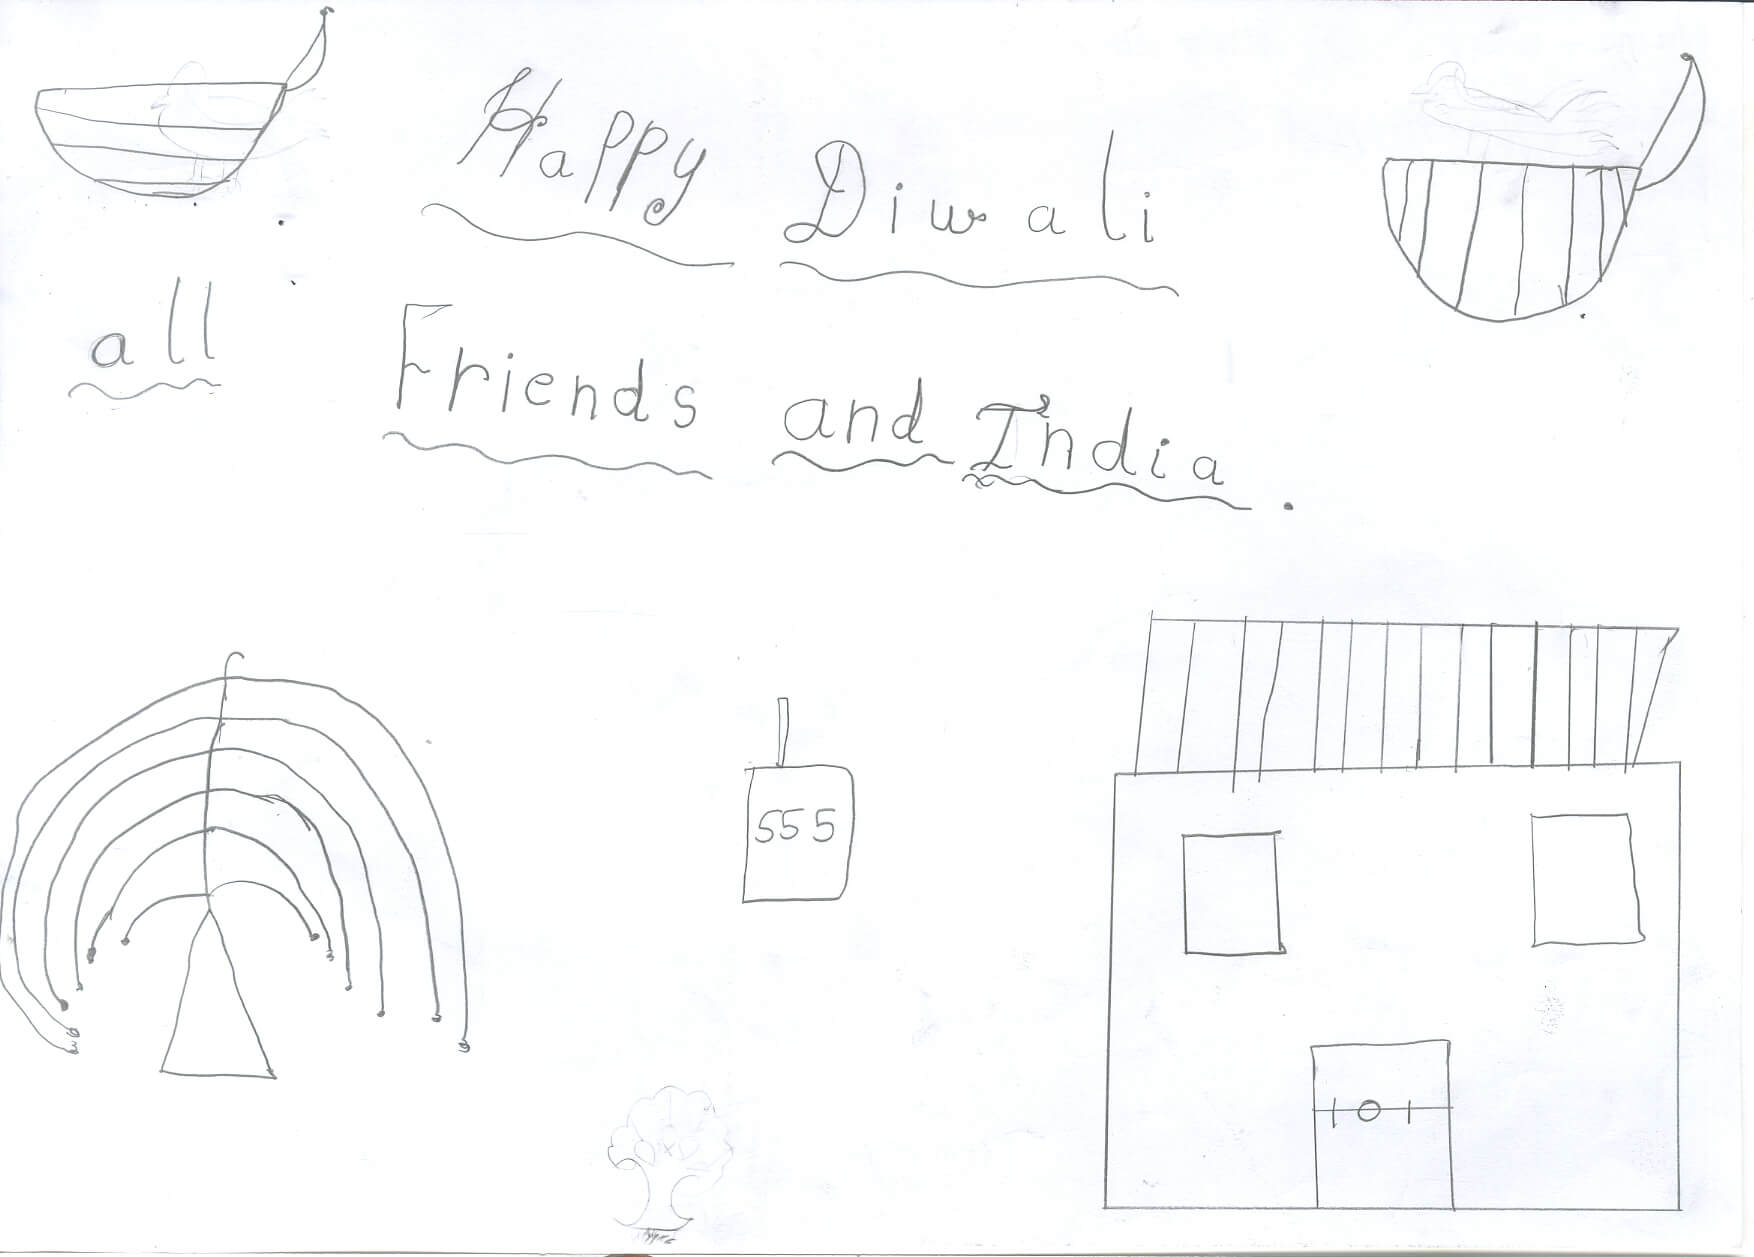 Happy Diwali
all Friends and India.
555